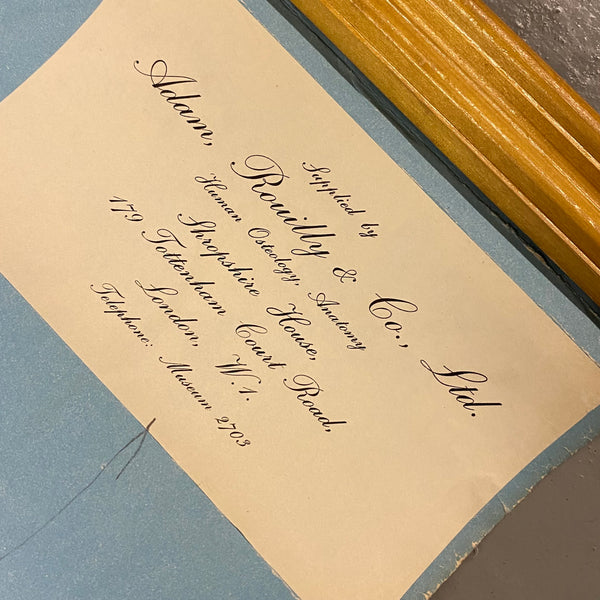 Supplied by
Adam, Rouilly & Co., Ltd.
Human Osteology, Anatomy
Shropshire House,
179 Tottenham Court Road,
London, W.1.
Telephone: Museum 2703